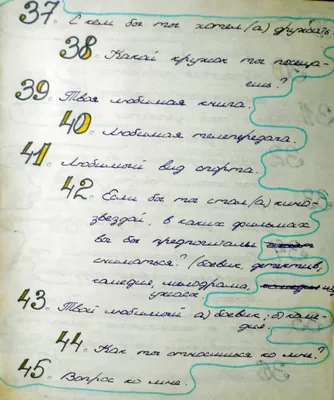 37. С кем бы ты хотел(а) дружить.
38. Какой кружок ты посеща-
ешь?
39. Твоя любимая книга.
40. Любимая телепередача.
41. Любимый вид спорта.
42. Если бы ты стал(а) кино-
звездой, в каких фильмах
вы бы предпочитали
сниматься? (боевик, детектив,
комедия, мелодрама,
ужасы.
43. Твой любимый а) боевик; б) коме-
дия.
44. Как ты относишься ко мне?
45. Вопрос ко мне.